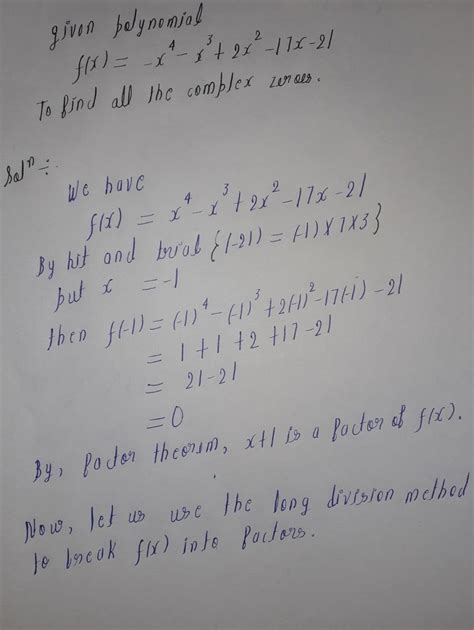 given polynomial
f(x) = -x⁴ - x³ + 2x² - 17x - 21
To find all the complex zeroes.
Solⁿ ÷
We have
f(x) = x⁴ - x³ + 2x² - 17x - 21
By hit and trial {(-21) = (-1) x 7 x 3}
put x = -1
then f(-1) = (-1)⁴ - (-1)³ + 2(-1)² - 17(-1) - 21
= 1 + 1 + 2 + 17 - 21
= 21 - 21
= 0
By, factor theorem, x+1 is a factor of f(x).
Now, let us use the long division method
to break f(x) into factors.